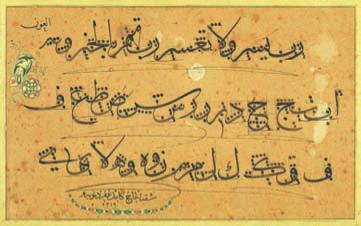 العون
رب يسر ولا تعسر رب تمم بالخير وبه
ا ب ت ث ج ح خ د ذ ر ز س ش ص ض ط ظ ع غ ف
ف ق ك ل م ن و ه لا ي